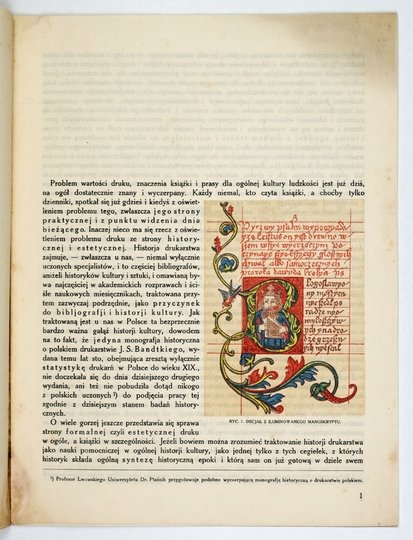 Problem wartości druku, znaczenia książki i prasy dla ogólnej kultury ludzkości jest już dziś,
na ogół dostatecznie znany i wyczerpany. Każdy niemal, kto czyta książki, a choćby tylko
dzienniki, spotkał się już gdzieś i kiedyś z oświet-
leniem problemu tego, zwłaszcza jego strony
praktycznej i z punktu widzenia dnia
bieżącego. Inaczej nieco ma się rzecz z oświe-
tleniem problemu druku ze strony history-
cznej i estetycznej. Historją drukarstwa
zajmuje, — zwłaszcza u nas, — niemal wyłącznie
uczonych specjalistów, i to częściej bibliografów,
aniżeli historyków kultury i sztuki, i omawianą by-
wa najczęściej w akademickich rozprawach i ści-
śle naukowych miesięcznikach, traktowana przy-
tem zazwyczaj podrzędnie, jako przyczynek
do bibljografji i historji kultury. Jak
traktowaną jest u nas w Polsce ta bezsprzecznie
bardzo ważna gałąź historji kultury, dowodem
na to fakt, że jedyna monografja historyczna
o polskiem drukarstwie J. S. Bandtkiego, wy-
dana temu lat sto, obejmująca zresztą wyłącznie
statystykę drukarń w Polsce do wieku XIX.,
nie doczekała się do dnia dzisiejszego drugiego
wydania, ani też nie pobudziła dotąd nikogo
z polskich uczonych ¹) do podjęcia pracy tej
zgodnie z dzisiejszym stanem badań history-
cznych.
O wiele gorzej jeszcze przedstawia się sprawa
strony formalnej czyli estetycznej druku
w ogóle, a książki w szczególności. Jeżeli bowiem można zrozumieć traktowanie historji drukarstwa
jako nauki pomocniczej w ogólnej historji kultury, jako jednej tylko z tych cegiełek, z których
historyk składa ogólną syntezę historyczną epoki i którą sam on już gotową w dziele swem
RYC. 1. INICJAŁ Z ILUMINOWANEGO MANUSKRYPTU.
¹) Profesor Lwowskiego Uniwersytetu Dr. Ptaśnik przygotowuje podobno wyczerpującą monografję historyczną o drukarstwie polskiem.
1